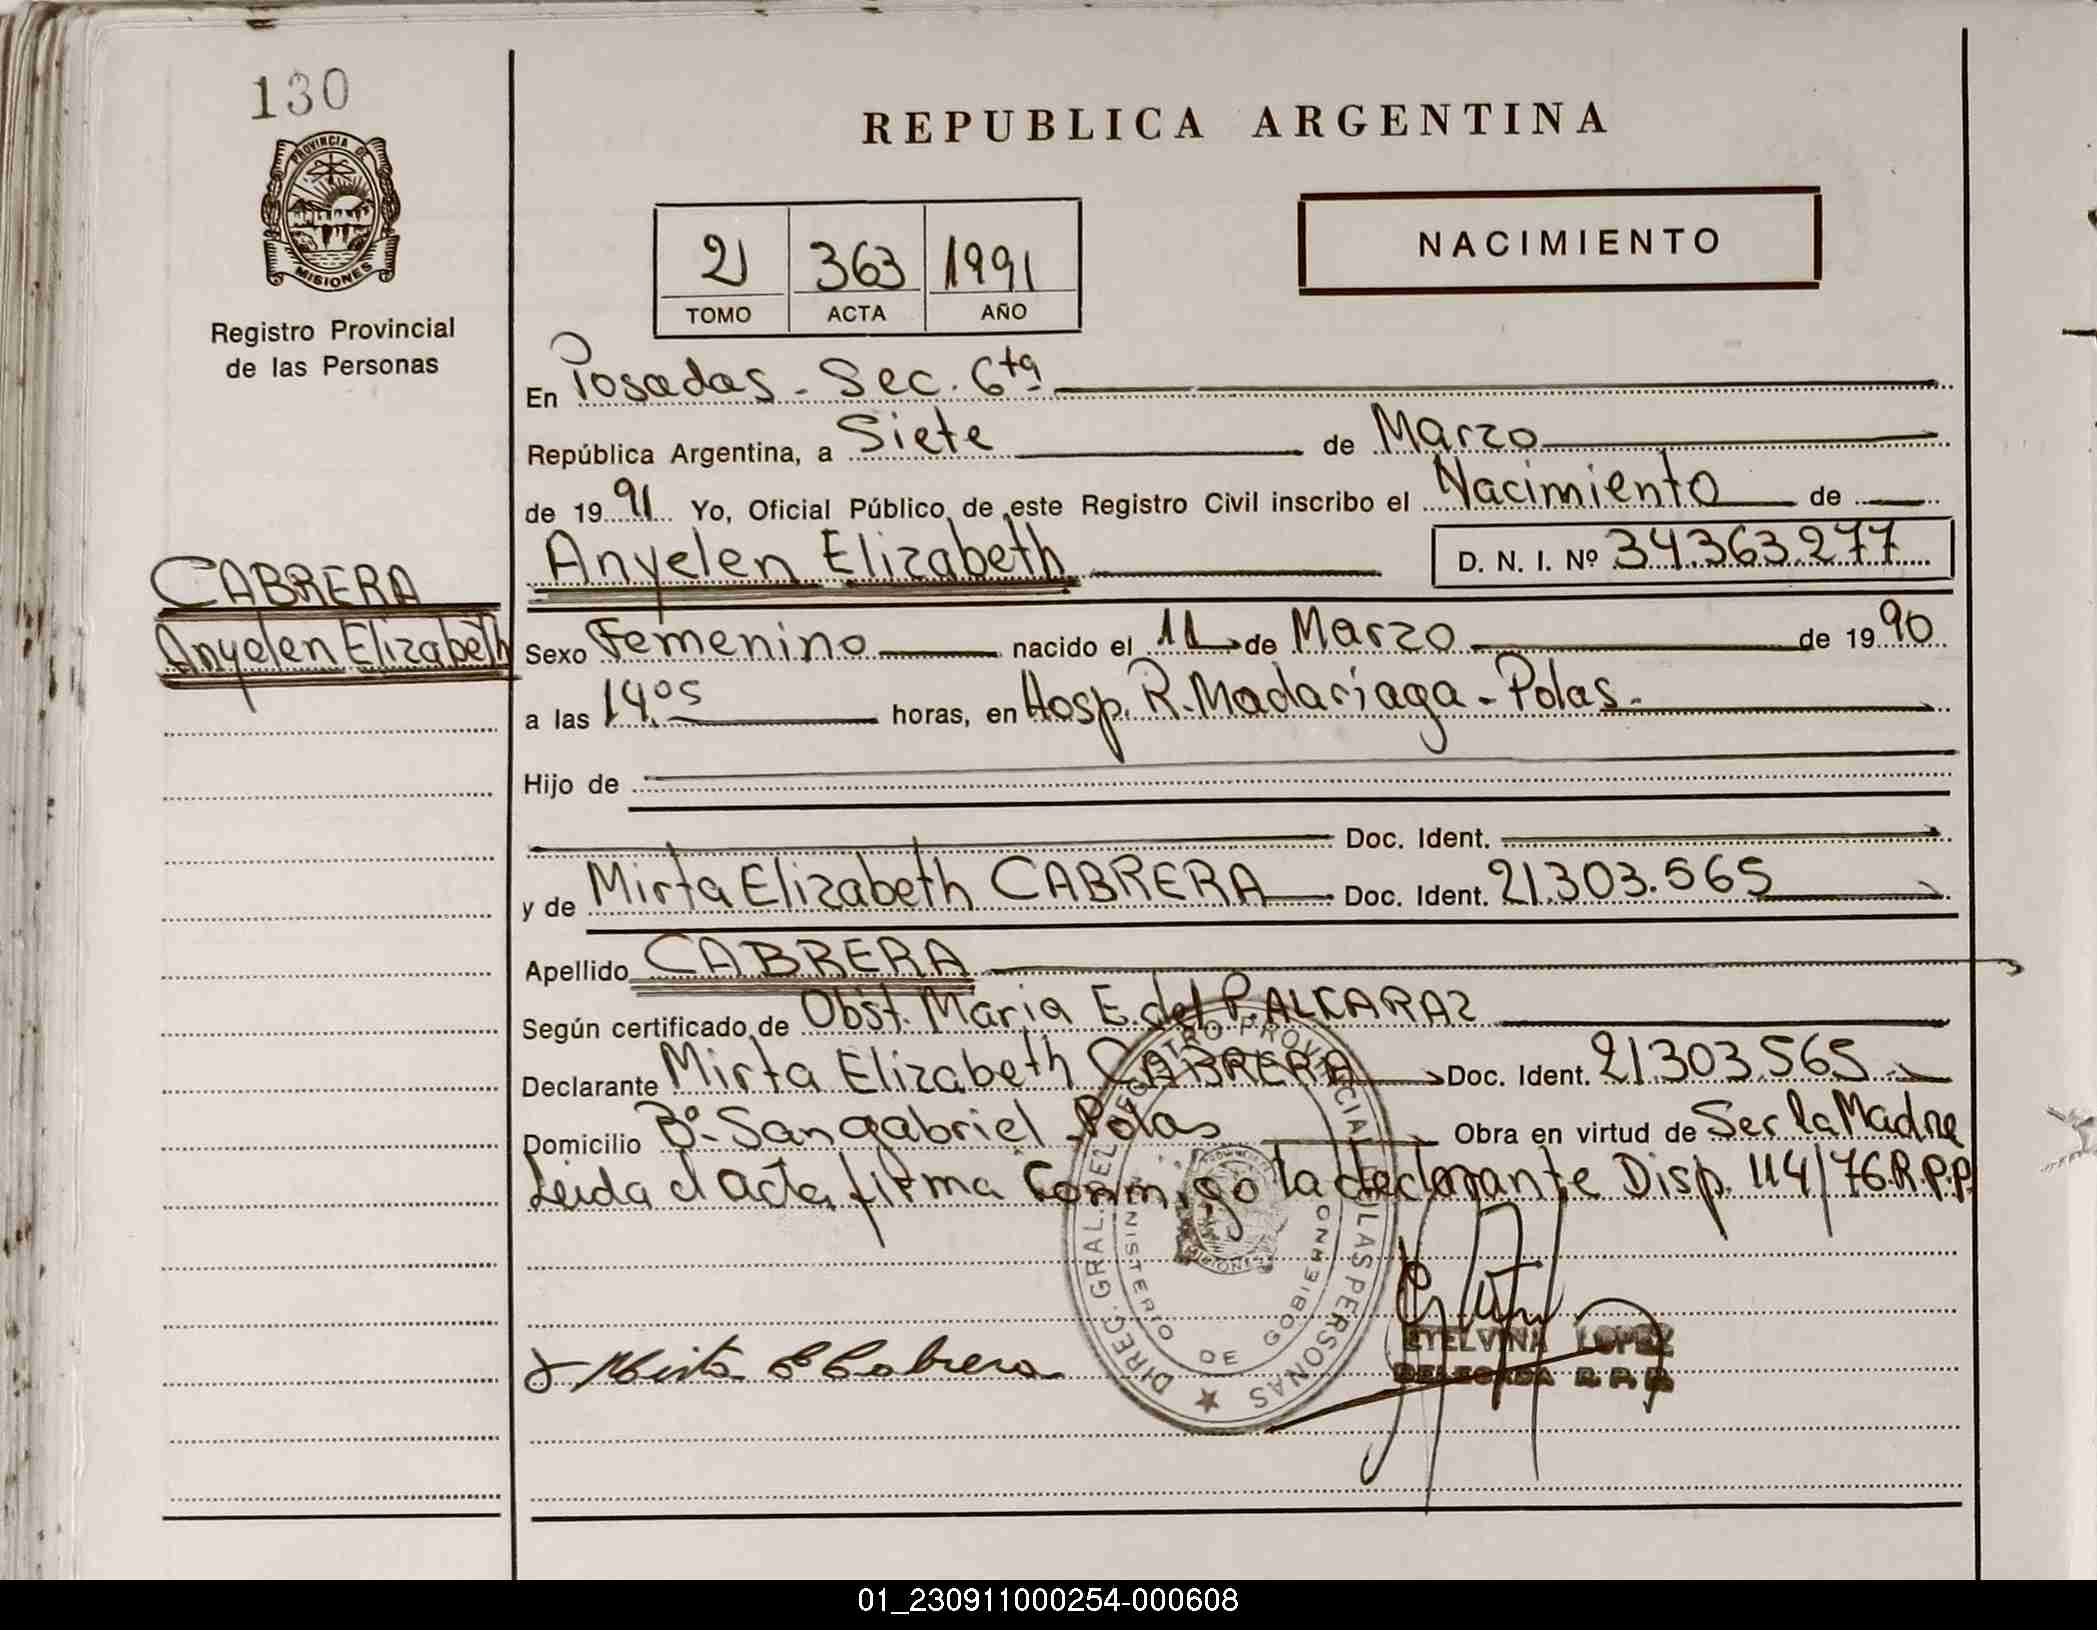 130
PROVINCIA DE
MISIONES
Registro Provincial
de las Personas
REPUBLICA ARGENTINA
NACIMIENTO
2 363 1991
TOMO ACTA AÑO
En Posadas - Sec. 6ta
República Argentina, a Siete de Marzo
de 1991 Yo, Oficial Público de este Registro Civil inscribo el Nacimiento de
Anyelen Elizabeth D. N. I. Nº 34.363.277
CABRERA
Anyelen Elizabeth
Sexo Femenino nacido el 11 de Marzo de 1990
a las 14.05 horas, en Hosp. R. Madariaga - Polas.
Hijo de
Doc. Ident.
y de Mirta Elizabeth CABRERA Doc. Ident. 21.303.565
Apellido CABRERA
Según certificado de Obst. Maria E. del P. ALCARAZ
Declarante Mirta Elizabeth CABRERA Doc. Ident. 21303.565
Domicilio Bº. San gabriel Polas Obra en virtud de Ser la Madre
Leida el acta, firma Conmigo la declarante Disp. 114/76.R.P.P.
DIREC. GRAL. DEL REGISTRO PROVINCIAL DE LAS PERSONAS
MINISTERIO DE GOBIERNO
MISIONES
Mirta E Cabrera
ETELVINA LOPEZ
DELEGADA R.P.P.
01_230911000254-000608